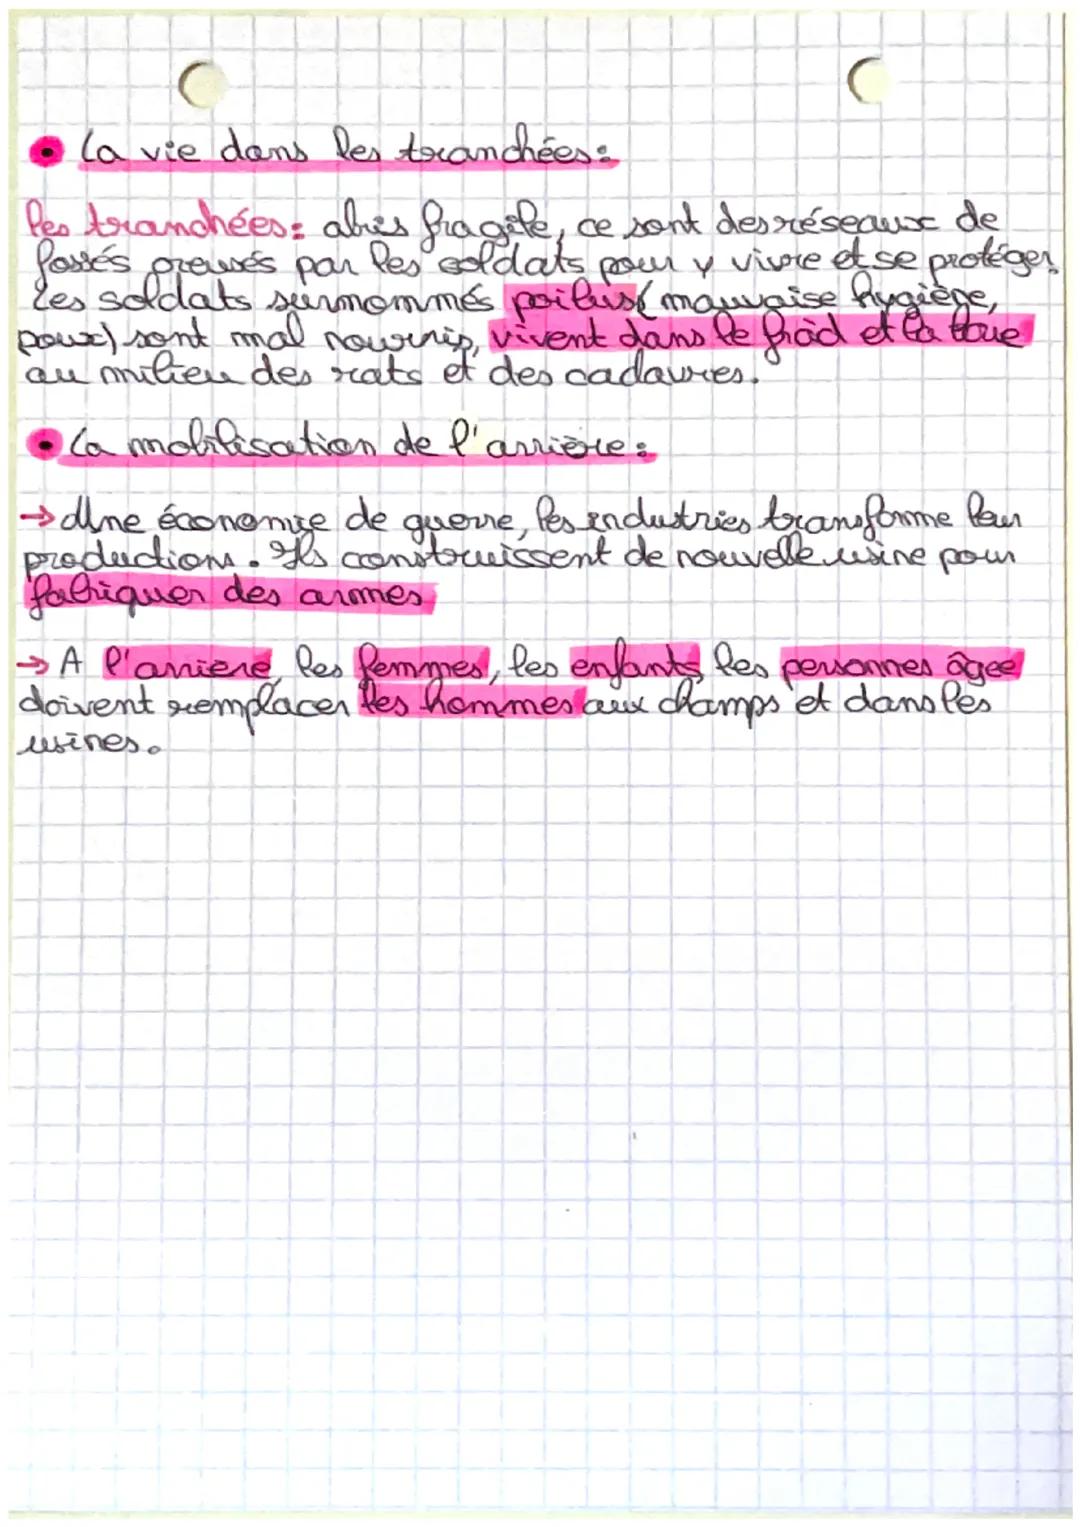 La vie dans les tranchées:
les tranchées: abris fragile, ce sont des réseaux de
fossés creusés par les soldats pour y vivre et se protéger.
Les soldats surnommés poilus (mauvaise hygiène,
poux) sont mal nourris, vivent dans le froid et la boue
au milieu des rats et des cadavres.
La mobilisation de l'arrière:
→ Une économie de guerre, les industries transforme leur
productions. Ils construissent de nouvelle usine pour
fabriquer des armes
→ A l'arriere, les femmes, les enfants, les personnes âgee
doivent remplacer les hommes aux champs et dans les
usines.